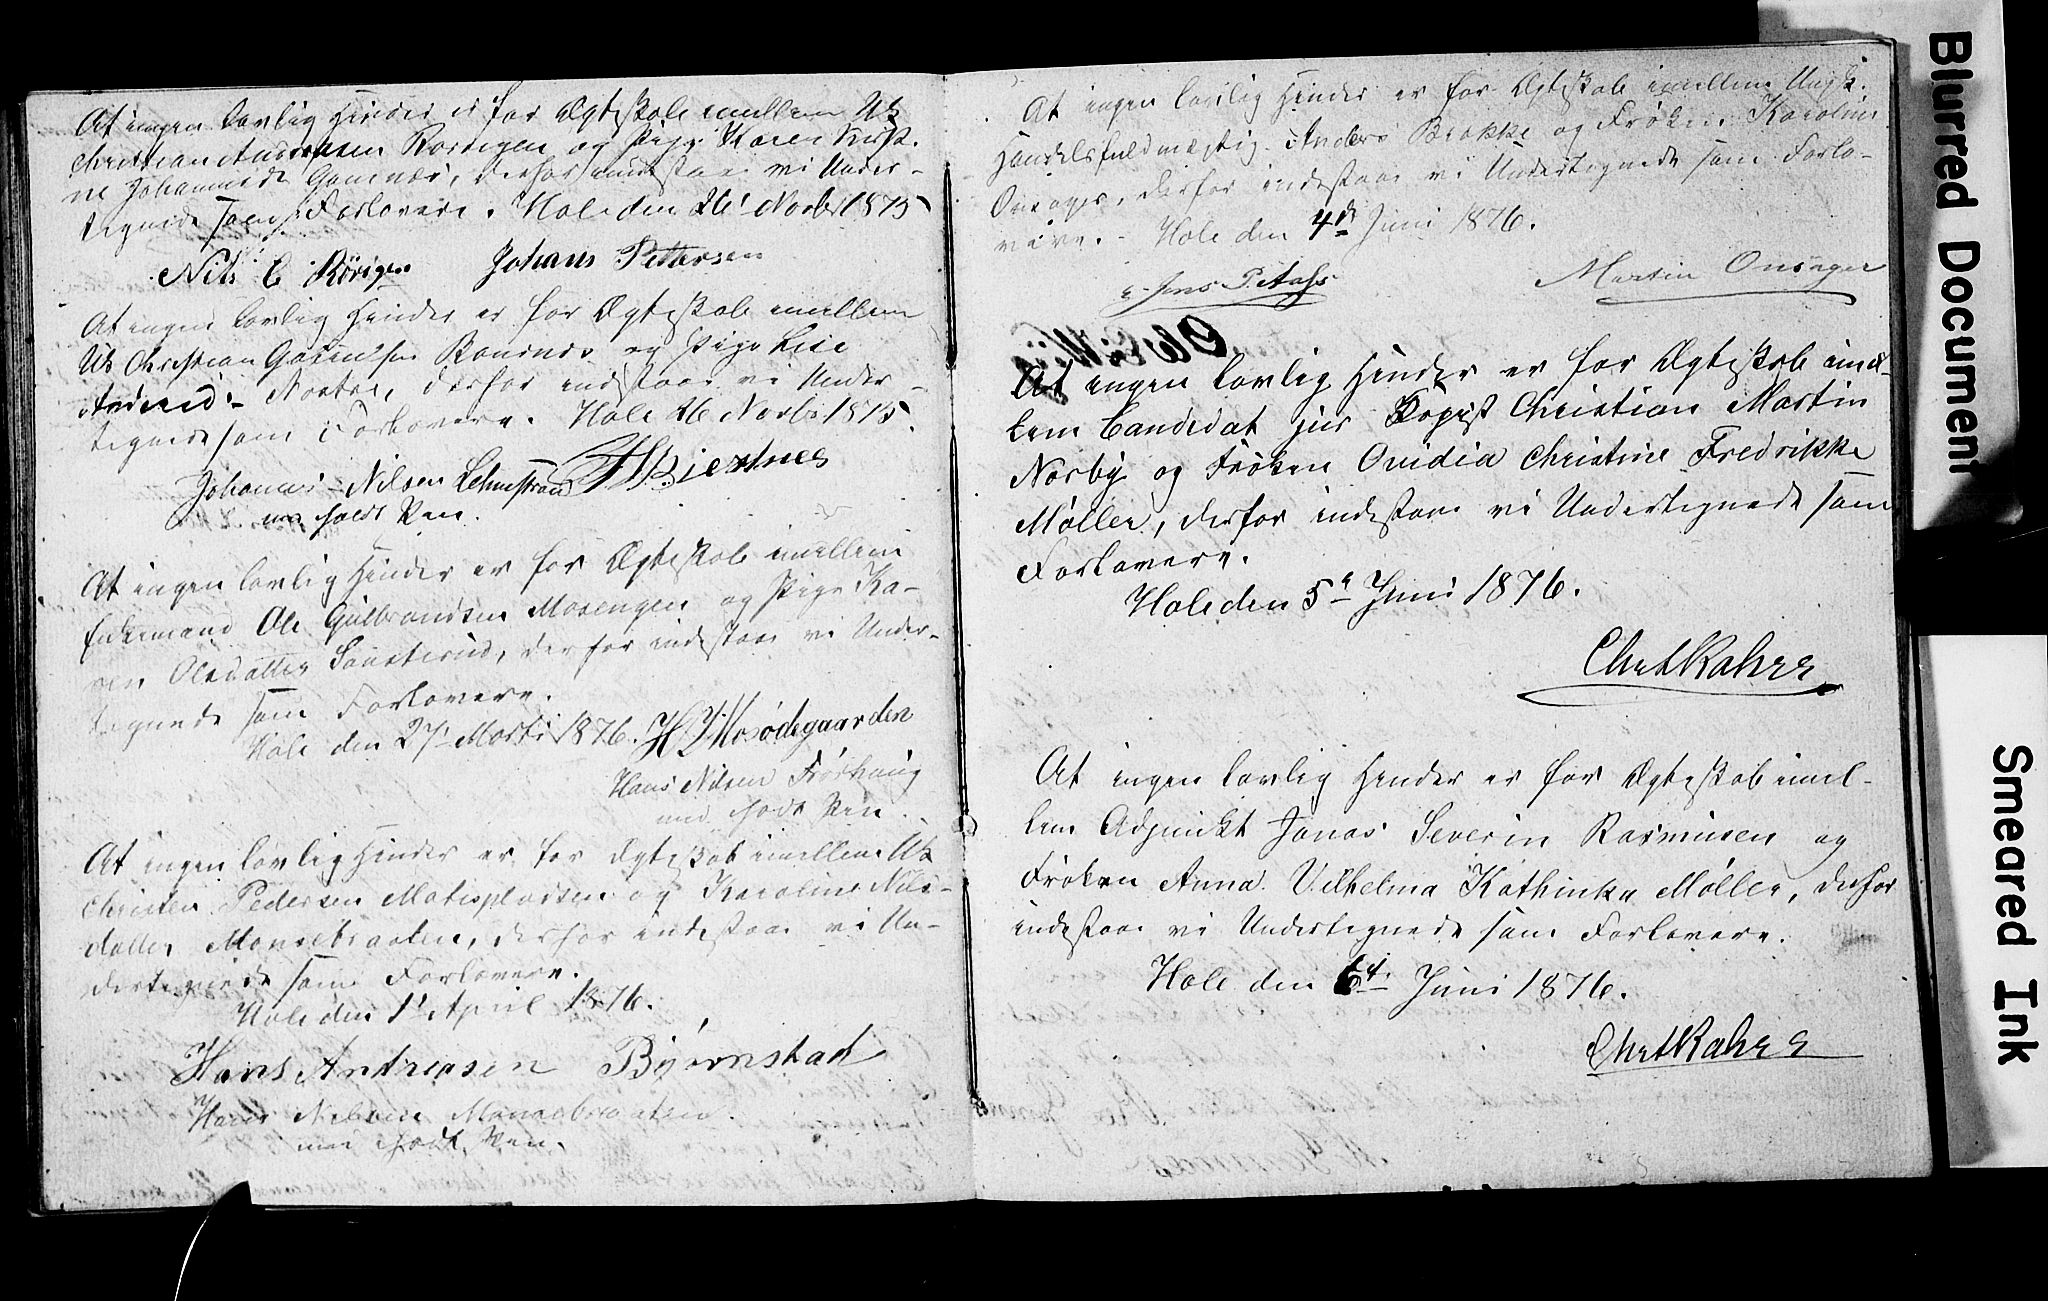 At ingen lovlig Hinder er for Ægteskab imellem Uk
Christian Andersen Rørvigen og Pige Karen Kirsti-
ne Johannesd. Gomnæs, derfor indestaar vi Under-
tegnede som Forlovere. Hole den 26' Novbr 1875
Nils C Rörigen Johans Pettersen
At ingen lovlig Hinder er for Ægteskab imellem
Uk Christian Gulbrandsen og Pige Lise
Andersd:, derfor indestaar vi Under-
tegnede som Forlovere. Hole 26 Novbr 1875.
Johannes Nilsen HBjertnes
m. holdt Pen.
At ingen lovlig Hinder er for Ægteskab imellem
Enkemand Ole Gulbrandsen Mosengen og Pige Ka-
ren Olsdatter, derfor indestaar vi Under-
tegnede som Forlovere.
Hole den 27' Marts 1876. H Mosødegaarden
Hans Nilsen Frøshaug
med holdt Pen.
At ingen lovlig Hinder er for Ægteskab imellem Uk
Christen Pedersen og Karoline Nils-
datter Monsebraaten, derfor indestaar vi Un-
dertegnede som Forlovere.
Hole den 1' April 1876.
Hans Andreasen Bjørnstad
Hans Nilsen Monsebraaten
med holdt Pen.
At ingen lovlig Hinder er for Ægteskab imellem Ungk.
Handelsfuldmægtig Anders Brokke og Frøken Karoline
Onsager, derfor indestaar vi Undertegnede som Forlo-
vere. - Hole den 4de Juni 1876.
Jens P. Martin Onsager
At ingen lovlig Hinder er for Ægteskab imel-
lem Candidat jur Kopist Christian Martin
Norby og Frøken Ovidia Christine Fredrikke
Møller, derfor indestaar vi Undertegnede som
Forlovere.
Hole den 5' Juni 1876.
At ingen lovlig Hinder er for Ægteskab imel-
lem Adjunkt Jonas Severin Rasmusen og
Frøken Anna Vilhelma Kathinka Møller, derfor
indestaar vi Undertegnede som Forlovere.
Hole den 6t. Juni 1876.
Blurred Document
Smeared Ink